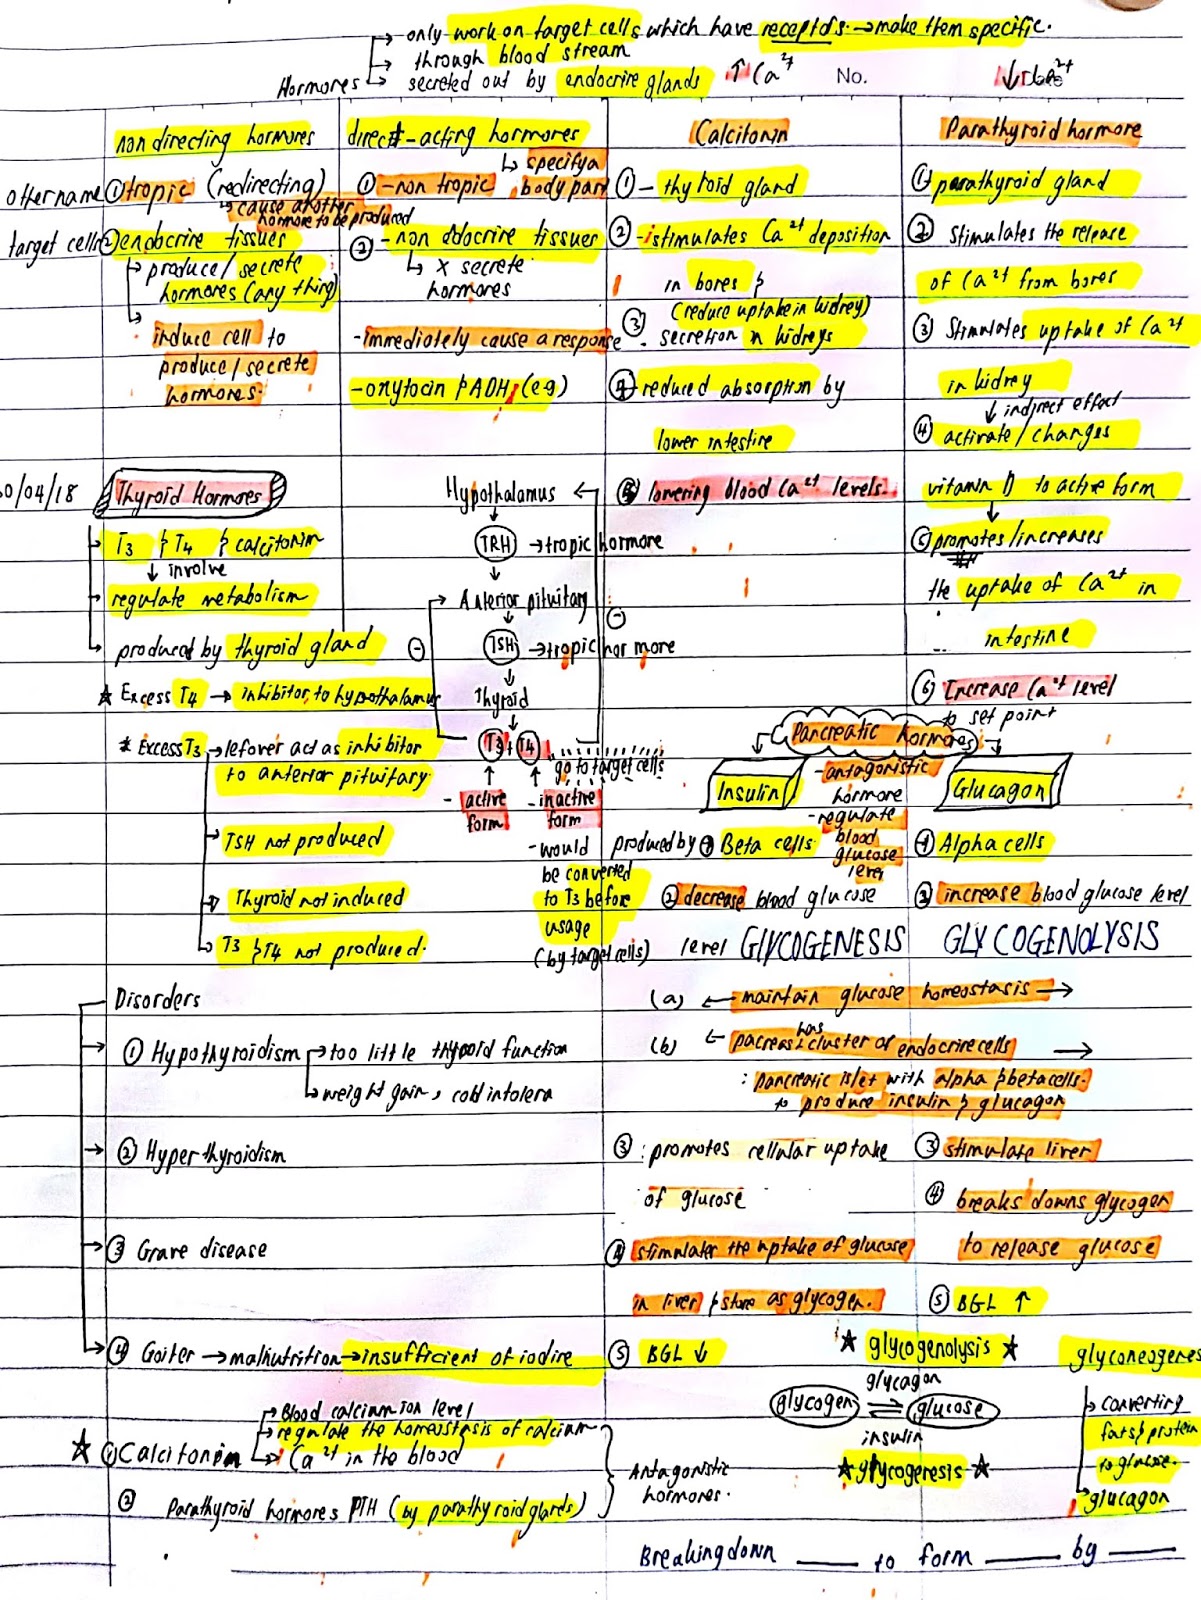 → only work on target cells which have receptors → make them specific.
→ through blood stream
Hormones → secreted out by endocrine glands
↑ Ca²⁺
No.
non directing hormones
other name ① tropic (redirecting)
↳ cause another hormone to be produced
target cells ② endocrine tissues
→ produce/secrete
hormones (any thing)
↓
induce cell to
produce/secrete
hormones.
direct-acting hormones
↳ specify a
body part
① - non tropic
② - non endocrine tissues
↳ x secrete
hormones
- immediately cause a response
- oxytocin & ADH (eg)
Calcitonin
① - thyroid gland
② - stimulates Ca²⁺ deposition
in bones &
(reduce uptake in kidney)
③ - secretion in kidneys
④ reduced absorption by
lower intestine
⑤ lowering blood Ca²⁺ levels.
Parathyroid hormone
① parathyroid gland
② stimulates the release
of Ca²⁺ from bones
③ Stimulates uptake of Ca²⁺
in kidney
↓ indirect effect
④ activate/changes
vitamin D to active form
↓
⑤ promotes/increases
the uptake of Ca²⁺ in
intestine
⑥ Increase Ca²⁺ level
to set point
0/04/18
Thyroid Hormones
→ T3 & T4 & calcitonin
↓ involve
→ regulate metabolism
→ produced by thyroid gland
★ Excess T4 → inhibitor to hypothalamus
* Excess T3 → leftover act as inhibitor
to anterior pituitary.
→ TSH not produced
→ Thyroid not induced
→ T3 & T4 not produced.
Hypothalamus
↓
TRH → tropic hormone
↓
Anterior pituitary
↓
TSH → tropic hormone
↓
Thyroid
↓
T3 + T4
go to target cells
- active form
- inactive form
- would
be converted
to T3 before
usage
(by target cells)
Pancreatic hormones
Insulin
- antagonistic
hormone
- regulate
blood
glucose
level
Glucagon
produced by ① Beta cells
② decrease blood glucose
level GLYCOGENESIS
① Alpha cells
② increase blood glucose level
GLYCOGENOLYSIS
(a) ← maintain glucose homeostasis →
(b) ← pacreas has cluster of endocrine cells →
: pancreatic islet with alpha & beta cells.
to produce insulin & glucagon
③ : promotes cellular uptake
of glucose
④ stimulates the uptake of glucose
in liver & store as glycogen.
⑤ BGL ↓
③ stimulate liver
④ breaks downs glycogen
to release glucose
⑤ BGL ↑
Disorders
→ ① Hypothyroidism → too little thyroid function
↳ weight gain, cold intolera
→ ② Hyperthyroidism
→ ③ Grave disease
→ ④ Goiter → malnutrition → insufficient of iodine
★ glycogenolysis ★
glycagon
glycogen ⇌ glucose
insulin
★ glycogenesis ★
glyconeogenes
→ converting
fats & protein
to glucose.
→ glucagon
→ Blood calcium ion level
→ regulate the homeostasis of calcium
★ ① Calcitonin → Ca²⁺ in the blood
② Parathyroid hormones PTH (by parathyroid glands)
Antagonistic
hormones.
Breakingdown ____ to form ____ by ____